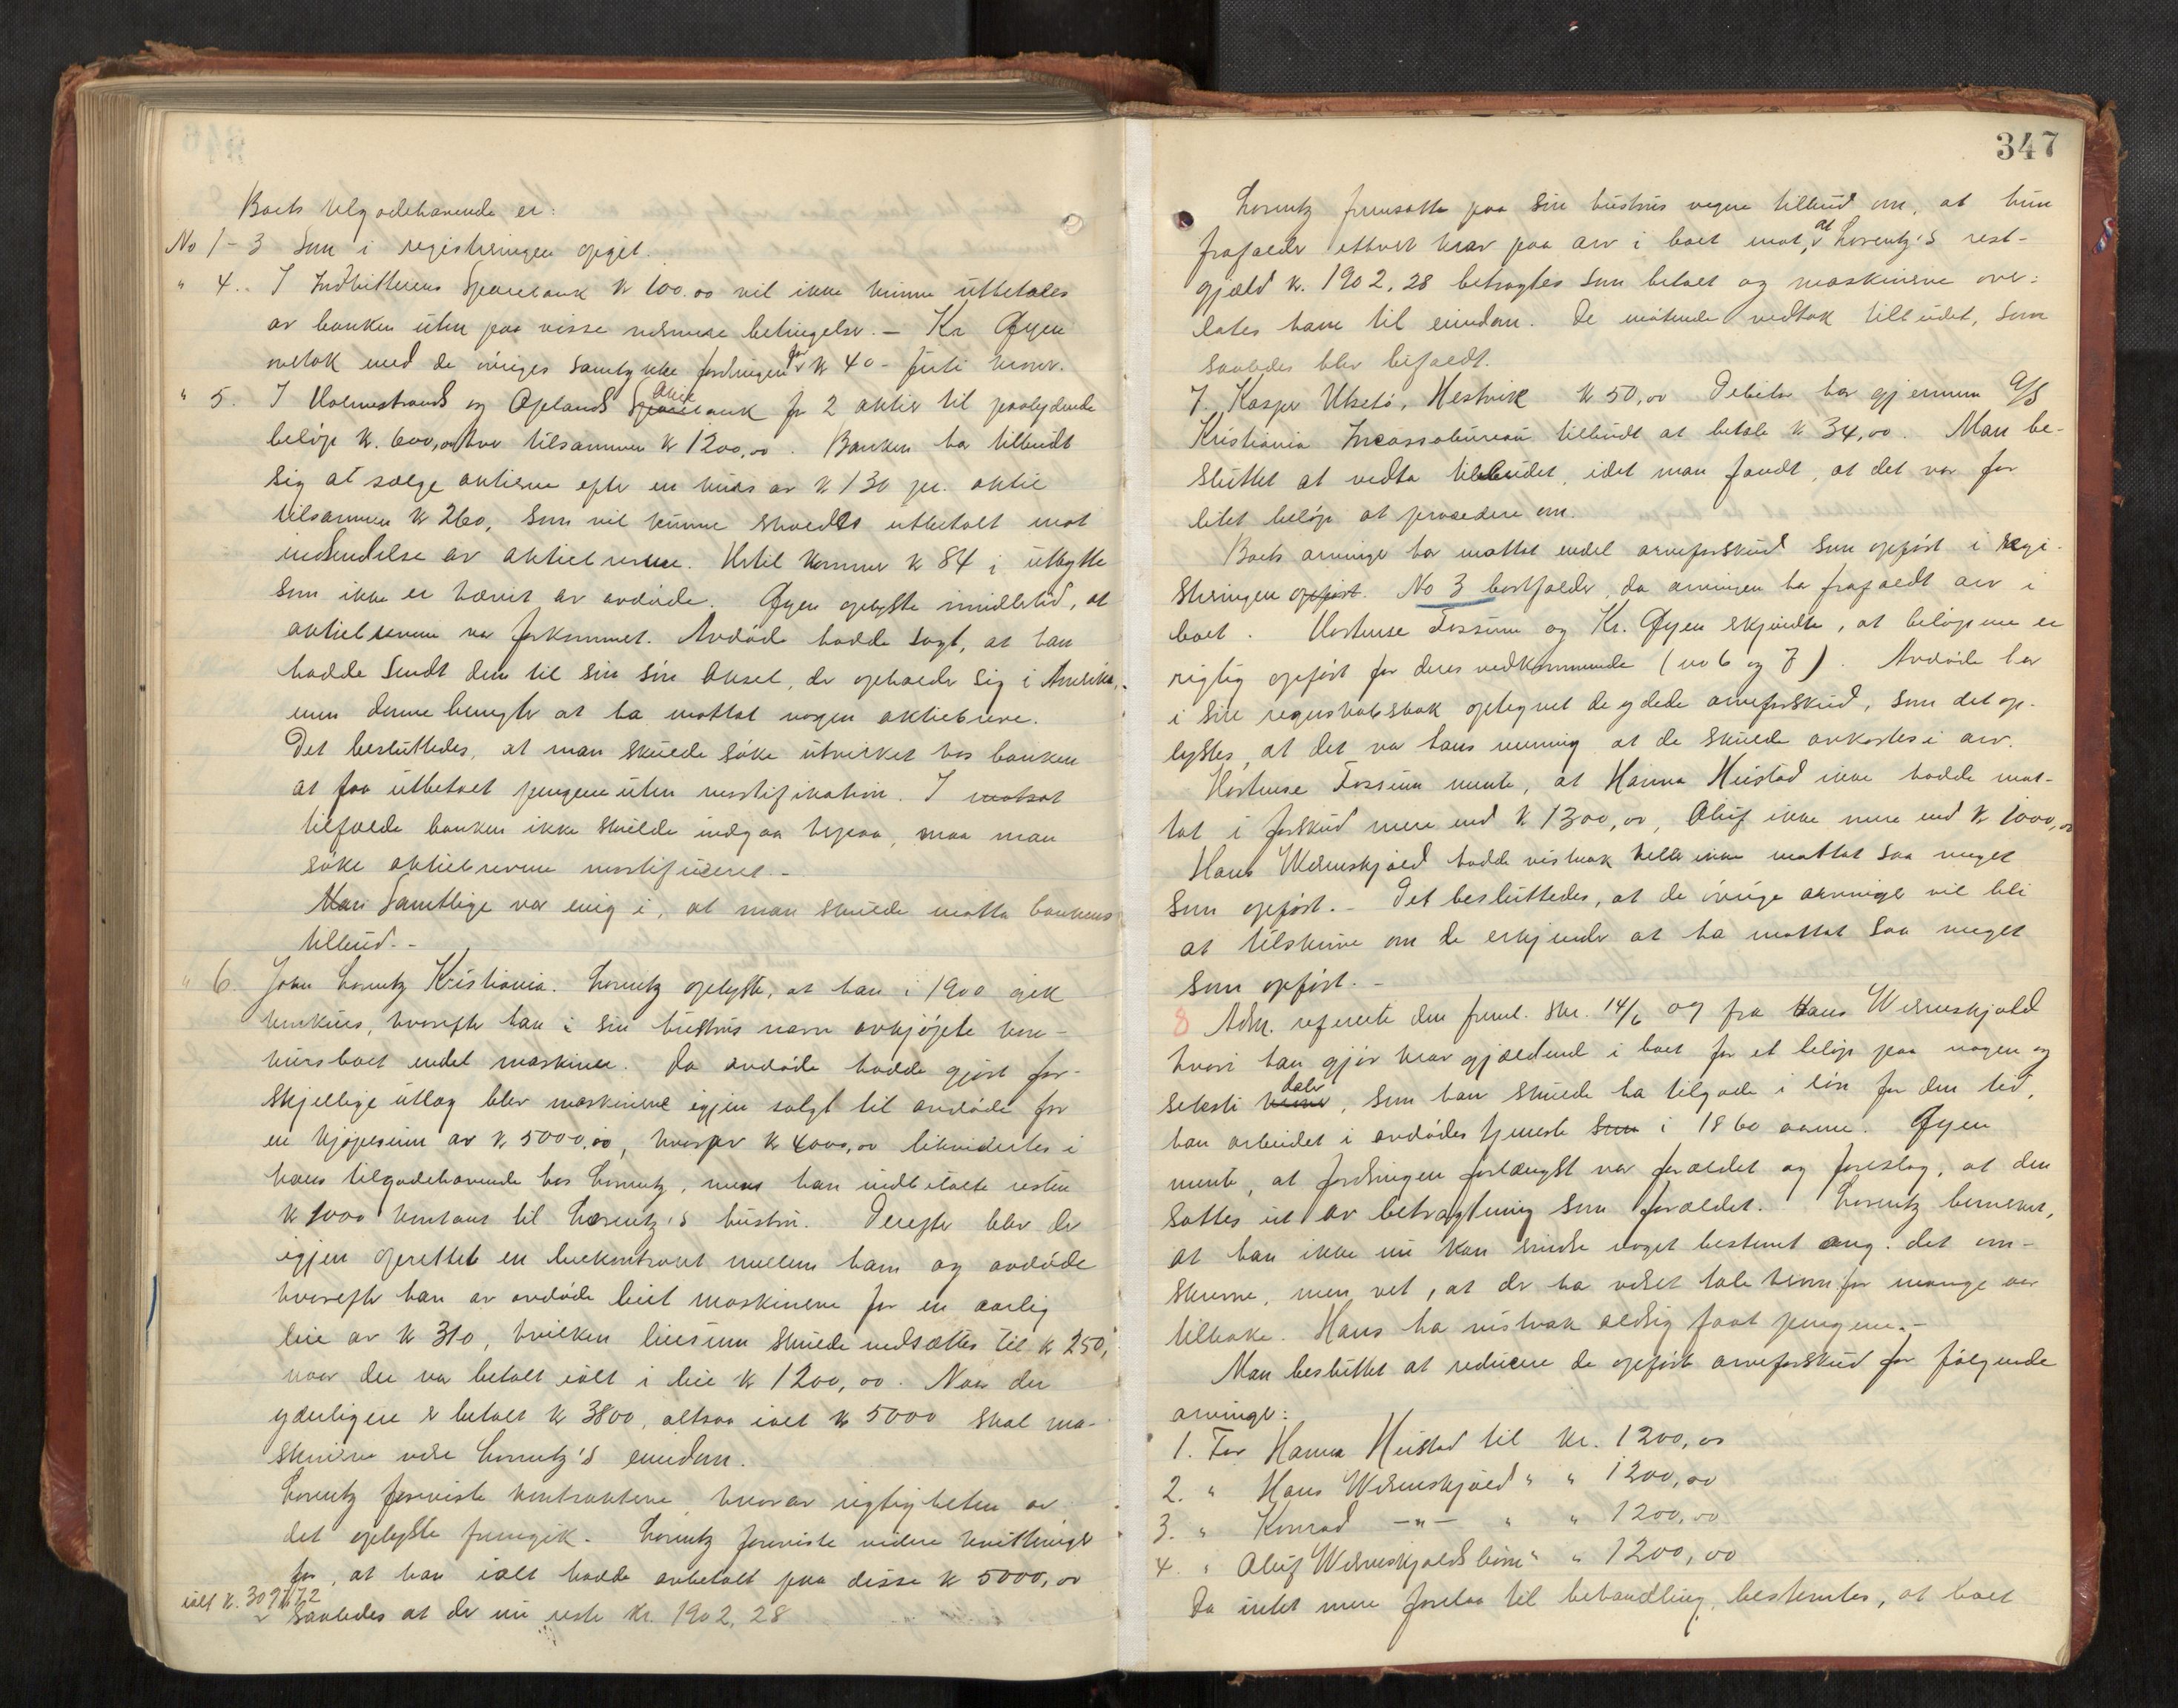 Boets tilgodehavende er:
No 1-3 Som i registreringen opgit.
" 4. I Indbitterens Sparebank k 100.00 vil ikke kunne utbetales
av banken uten paa visse nærmere betingelser. - Kr Øyen
overtok med de øvriges samtykke fordringen for k 40 - førti kroner.
" 5. I Holmestrands og Oplands Aktiebank for 2 aktier til paalydende
beløp k. 600,00 hver tilsammen k 1200,00. Banken har tilbudt
sig at sælge aktierne efter en kurs av k 130 pr. aktie
tilsammen k 260, som vil kunne straks utbetalt mot
indsendelse av aktiebrevene. Hertil kommer k 84 i utbytte
som ikke er hævet av avdøde. Øyen oplyste imidlertid, at
aktiebrevene var forkommet. Avdøde hadde sagt, at han
hadde sendt dem til sin søn Aksel, der opholder sig i Amerika,
men denne benegter at ha mottat nogen aktiebreve.
Det besluttedes, at man skulde søke utvirket hos banken
at faa utbetalt pengene uten mortifikation. I motsat
tilfælde banken ikke skulde indgaa herpaa, maa man
søke aktiebrevene mortificeret. -
Man Samtlige var enig i, at man skulde motta bankens
tilbud. -
" 6. John Lorentz Kristiania. Lorentz oplyste, at han i 1900 gik
konkurs, hvorefter han i sin hustrus navn avkjøpte kon-
kursboet endel maskiner. Da avdøde hadde gjort for-
skjellige utlæg blev maskinerne igjen solgt til avdøde for
en kjøpesum av k 5000,00, hvorav k 4000,00 likvidertes i
hans tilgodehavende hos Lorentz, mens han indbetalte resten
k 1000 kontant til Lorentz's hustru. Derefter blev der
igjen oprettet en leiekontrakt mellem ham og avdøde
hvorefter han av avdøde leiet maskinerne for en aarlig
leie av k 310, hvilken leiesum skulde nedsættes til k 250,
naar der var betalt ialt i leie k 1200,00. Naar der
yderligere er betalt k 3800, altsaa ialt k 5000 skal ma-
skinerne være Lorentz's eiendom.
Lorentz foreviste kontrakterne hvorav rigtigheten av
det oplyste fremgik. Lorentz foreviste videre kvitteringer
for, at han ialt hadde avbetalt paa disse k 5000,00
ialt k. 3097,72
saaledes at der nu rester kr. 1902,28
347
Lorentz fremsatte paa sin hustrus vegne tilbud om, at hun
frafalder ethvert krav paa arv i boet mot, at Lorentz's rest-
gjæld k. 1902,28 betragtes som betalt og maskinerne over-
lates ham til eiendom. De møtende vedtok tilbudet, som
saaledes blev bifaldt.
7. Kasper Utsetø, Hestvik k 50,00 Debitor har gjennem A/S
Kristiania Incassobureau tilbudt at betale k 34,00. Man be-
sluttet at vedta tilbudet, idet man fandt, at det var for
litet beløp at procedere om.
Boets arvinger har mottat endel arveforskud som opført i regi-
streringen opført. No 3 bortfalder, da arvingen har frafaldt arv i
boet. Hortense Fossum og Kr. Øyen erkjendte, at beløpene er
rigtig opført for deres vedkommende (no 6 og 7). Avdøde har
i sin regnskabsbok optegnet de ydede arveforskud, som det op-
lystes, at det var hans mening at de skulde avkortes i arv.
Hortense Fossum mente, at Hanna Heistad ikke hadde mot-
tat i forskud mere end k 1300,00, Oluf ikke mere end k 1000,00
Hans Werenskjold hadde vistnok heller ikke mottat saa meget
som opført. - Det besluttedes, at de øvrige arvinger vil bli
at tilskrive om de erkjender at ha mottat saa meget
som opført. -
8 Adm. refererte den freml. skr. 14/6 09 fra Hans Werenskjold
hvori han gjør krav gjældende i boet for et beløp paa nogen og
seksti kroner daler, som han skulde ha tilgode i løn for den tid,
han arbeidet i avdødes tjeneste som i 1860 aarene. Øyen
mente, at fordringen forlængst var forældet og foreslog, at den
sattes ut av betragtning som forældet. Lorentz bemerket,
at han ikke nu kan erindre noget bestemt ang. det om-
skrevne, men vet, at der har været tale herom for mange aar
tilbake. Hans har vistnok aldrig faat pengene. -
Man besluttet at reducere de opførte arveforskud for følgende
arvinger:
1. For Hanna Heistad til kr. 1200,00
2. " Hans Werenskjold " " 1200,00
3. " Konrad -"- " " 1200,00
4. " Oluf Werenskjolds børn " " 1200,00
Da intet mere forelaa til behandling, bestemtes, at boet